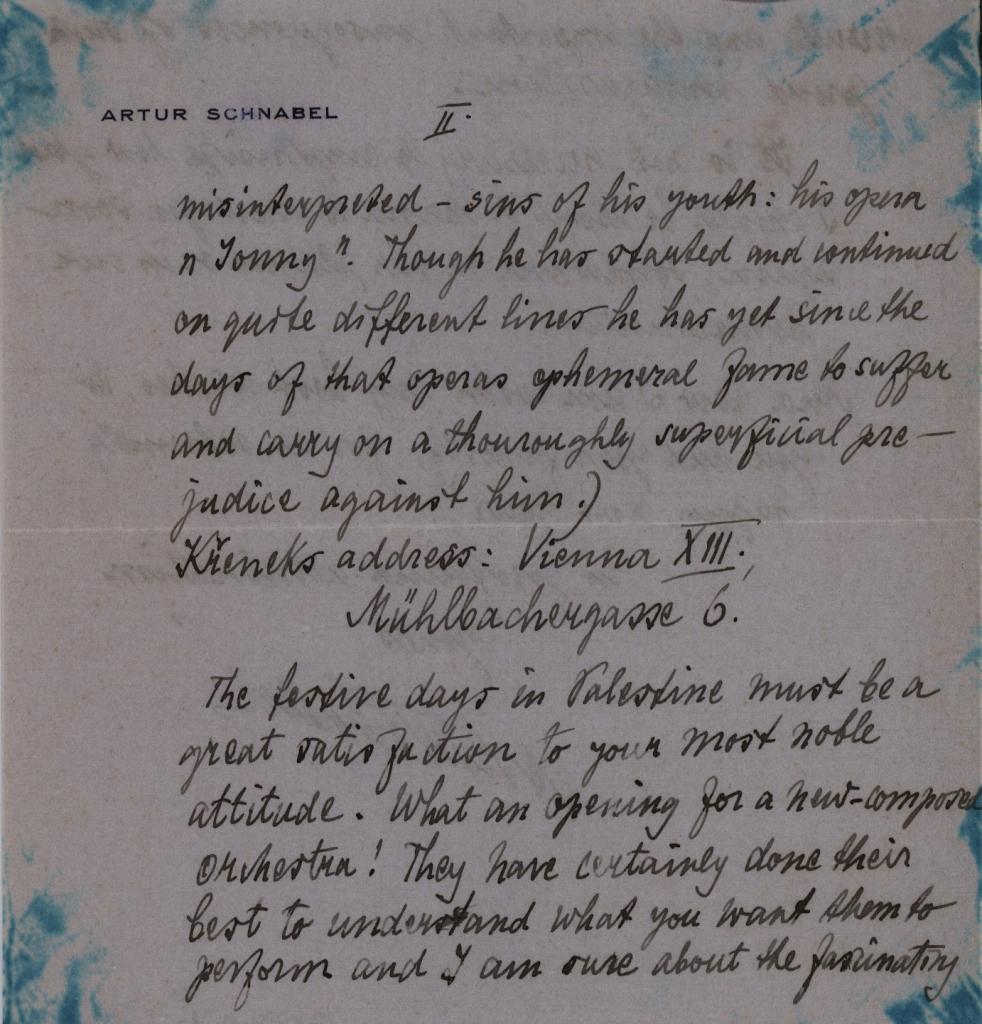 ARTUR SCHNABEL
II.
misinterpreted – sins of his youth: his opera
„Jonny". Though he has started and continued
on quite different lines he has yet since the
days of that operas ephemeral fame to suffer
and carry on a thouroughly superficial pre-
judice against him.)
Křeneks address: Vienna XIII.,
Mühlbachergasse 6.
The festive days in Palestine must be a
great satisfaction to your most noble
attitude. What an opening for a new-composed
orchestra! They have certainly done their
best to understand what you want them to
perform and I am sure about the fascinating